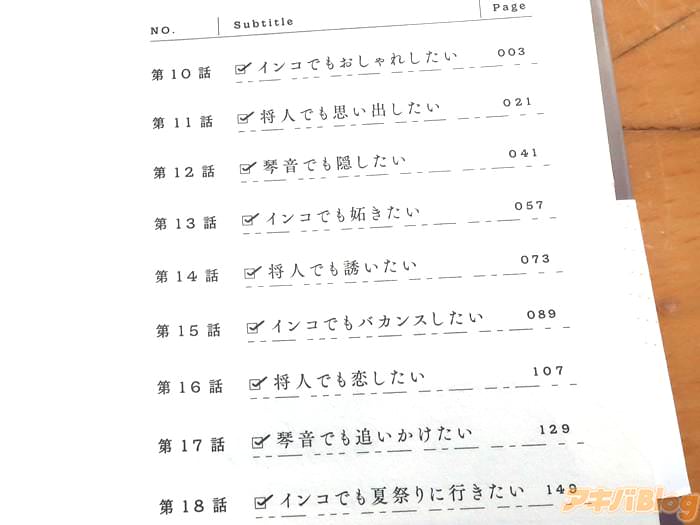 NO. Subtitle Page
第10話 インコでもおしゃれしたい 003
第11話 将人でも思い出したい 021
第12話 琴音でも隠したい 041
第13話 インコでも妬きたい 057
第14話 将人でも誘いたい 073
第15話 インコでもバカンスしたい 089
第16話 将人でも恋したい 107
第17話 琴音でも追いかけたい 129
第18話 インコでも夏祭りに行きたい 149
アキバBlog